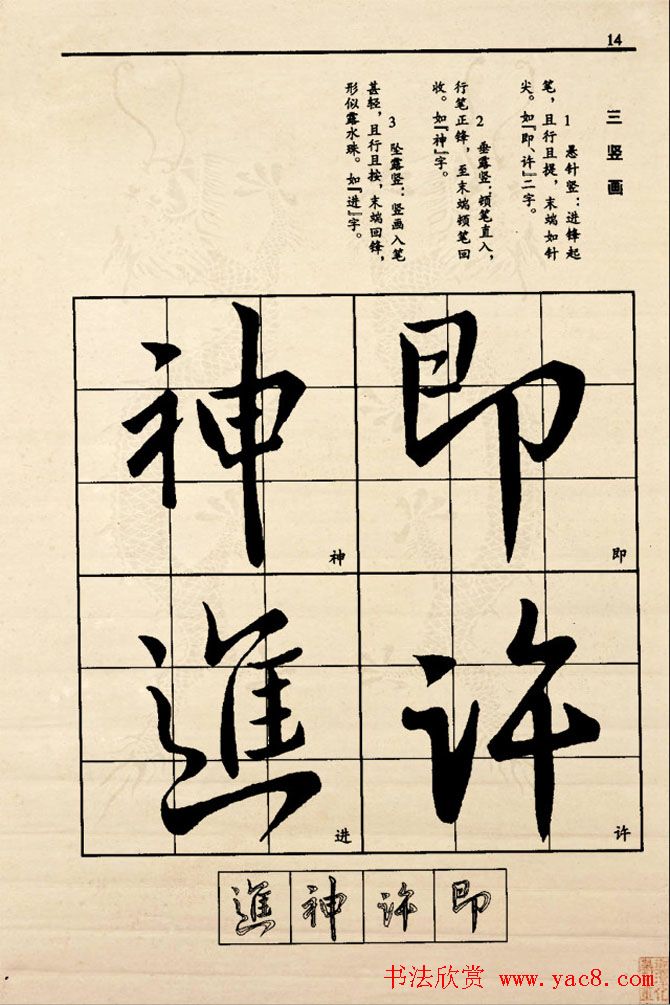 14
三 竖画
1 悬针竖：进锋起
笔，且行且提，末端如针
尖。如『即、许』二字。
2 垂露竖：顿笔直入，
行笔正锋，至末端顿笔回
收。如『神』字。
3 坠露竖：竖画入笔
甚轻，且行且按，末端回锋，
形似露水珠。如『进』字。
即
即
許
许
神
神
進
进
即
許
神
進
书法欣赏 www.yac8.com